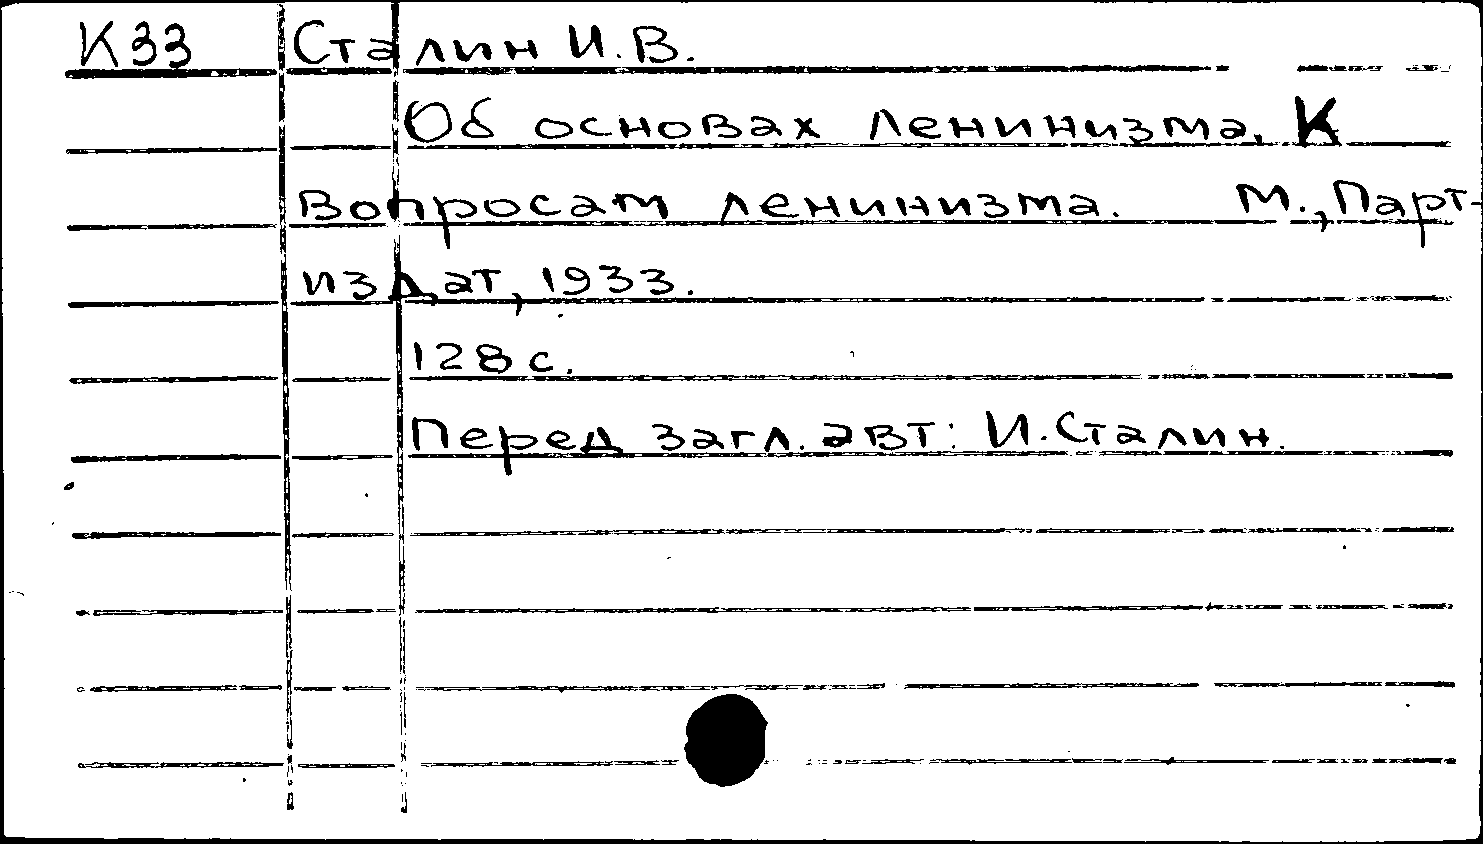 К33 Сталин И.В.
Об основах ленинизма. К
вопросам ленинизма. М., Парт-
издат, 1933.
128 с.
Перед загл. авт: И. Сталин.